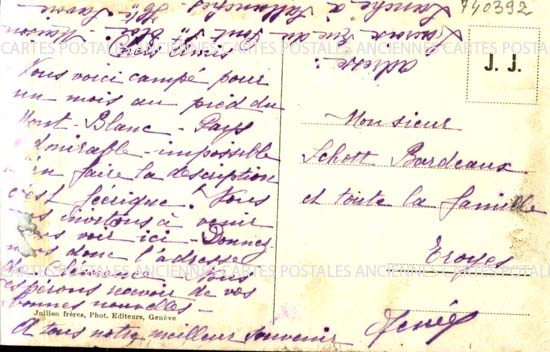 740392
J. J.
adresse :
rue du Pont St Eloi - Maison
à Sallanches Hte Savoie
Chers Amis
Vous voici campé pour
un mois au pied du
Mont-Blanc - Pays
admirable - impossible
d'en faire la description
c'est féerique. Nous
vous invitons à venir
nous voir ici - Donnez
nous donc l'adresse
Clémence - Nous
espérons recevoir de vos
bonnes nouvelles -
Jullien frères, Phot. Editeurs, Genève
A tous notre meilleur souvenir
Monsieur
Schott Bordeaux
et toute la famille
Troyes
CARTES POSTALES ANCIENNES CARTES POSTALES ANCIENNES CARTES POSTALES